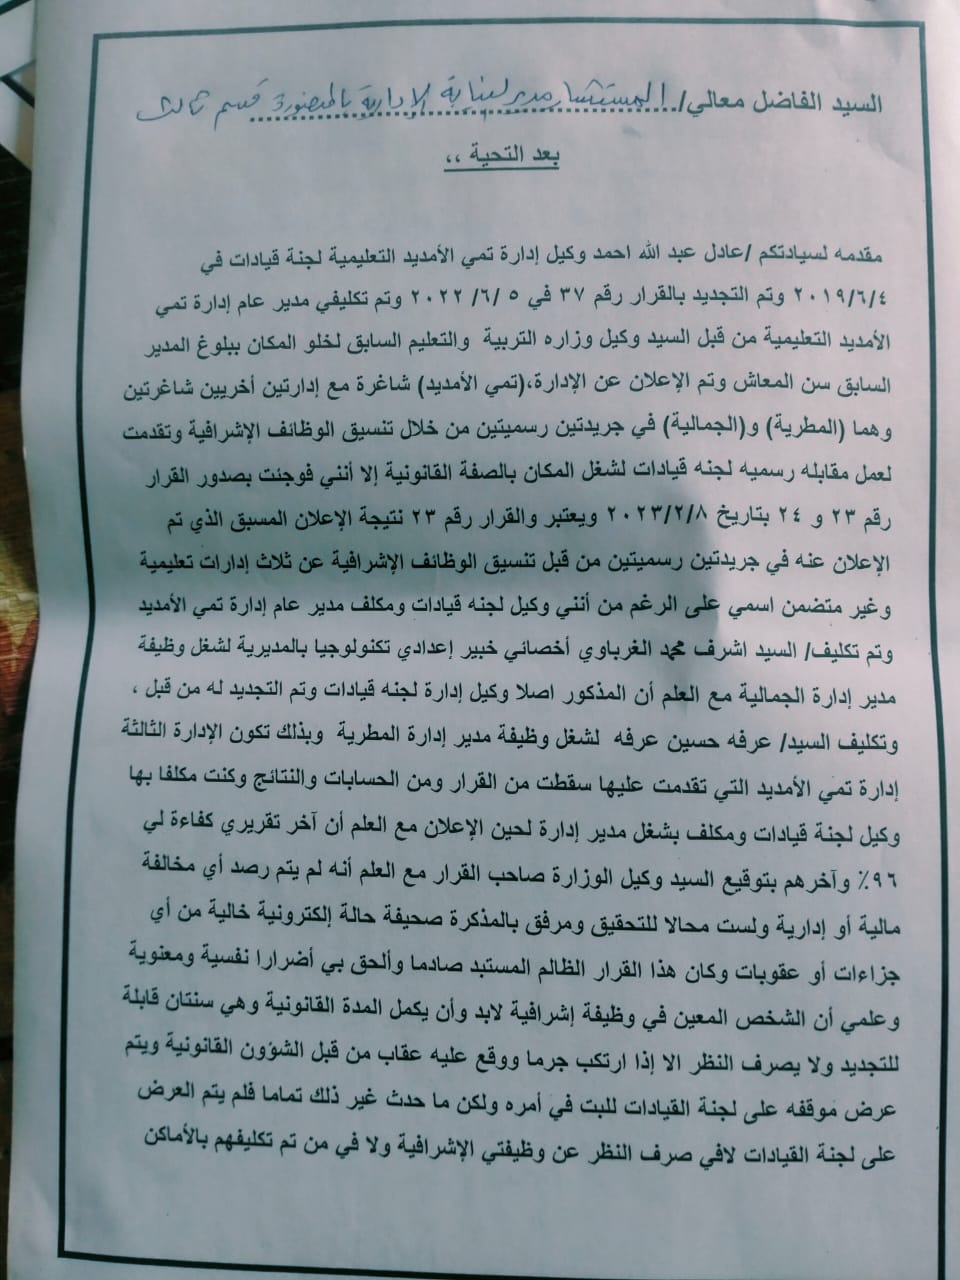 السيد الفاضل معالي/ المستشار مدير النيابة الإدارية بالمنصورة قسم ثالث
بعد التحية ،،
مقدمه لسيادتكم /عادل عبد الله احمد وكيل إدارة تمي الأمديد التعليمية لجنة قيادات في
٢٠١٩/٦/٤ وتم التجديد بالقرار رقم ٣٧ في ٥ /٦/ ٢٠٢٢ وتم تكليفي مدير عام إدارة تمي
الأمديد التعليمية من قبل السيد وكيل وزاره التربية والتعليم السابق لخلو المكان ببلوغ المدير
السابق سن المعاش وتم الإعلان عن الإدارة،(تمي الأمديد) شاغرة مع إدارتين أخريين شاغرتين
وهما (المطرية) و(الجمالية) في جريدتين رسميتين من خلال تنسيق الوظائف الإشرافية وتقدمت
لعمل مقابله رسميه لجنه قيادات لشغل المكان بالصفة القانونية إلا أنني فوجئت بصدور القرار
رقم ٢٣ و ٢٤ بتاريخ ٢٠٢٣/٢/٨ ويعتبر والقرار رقم ٢٣ نتيجة الإعلان المسبق الذي تم
الإعلان عنه في جريدتين رسميتين من قبل تنسيق الوظائف الإشرافية عن ثلاث إدارات تعليمية
وغير متضمن اسمي على الرغم من أنني وكيل لجنه قيادات ومكلف مدير عام إدارة تمي الأمديد
وتم تكليف/ السيد اشرف محمد الغرباوي أخصائي خبير إعدادي تكنولوجيا بالمديرية لشغل وظيفة
مدير إدارة الجمالية مع العلم أن المذكور اصلا وكيل إدارة لجنه قيادات وتم التجديد له من قبل ،
وتكليف السيد/ عرفه حسين عرفه لشغل وظيفة مدير إدارة المطرية وبذلك تكون الإدارة الثالثة
إدارة تمي الأمديد التي تقدمت عليها سقطت من القرار ومن الحسابات والنتائج وكنت مكلفا بها
وكيل لجنة قيادات ومكلف بشغل مدير إدارة لحين الإعلان مع العلم أن آخر تقريري كفاءة لي
٩٦٪ وآخرهم بتوقيع السيد وكيل الوزارة صاحب القرار مع العلم أنه لم يتم رصد أي مخالفة
مالية أو إدارية ولست محالا للتحقيق ومرفق بالمذكرة صحيفة حالة إلكترونية خالية من أي
جزاءات أو عقوبات وكان هذا القرار الظالم المستبد صادما وألحق بي أضرارا نفسية ومعنوية
وعلمي أن الشخص المعين في وظيفة إشرافية لابد وأن يكمل المدة القانونية وهي سنتان قابلة
للتجديد ولا يصرف النظر الا إذا ارتكب جرما ووقع عليه عقاب من قبل الشؤون القانونية ويتم
عرض موقفه على لجنة القيادات للبت في أمره ولكن ما حدث غير ذلك تماما فلم يتم العرض
على لجنة القيادات لافي صرف النظر عن وظيفتي الإشرافية ولا في من تم تكليفهم بالأماكن